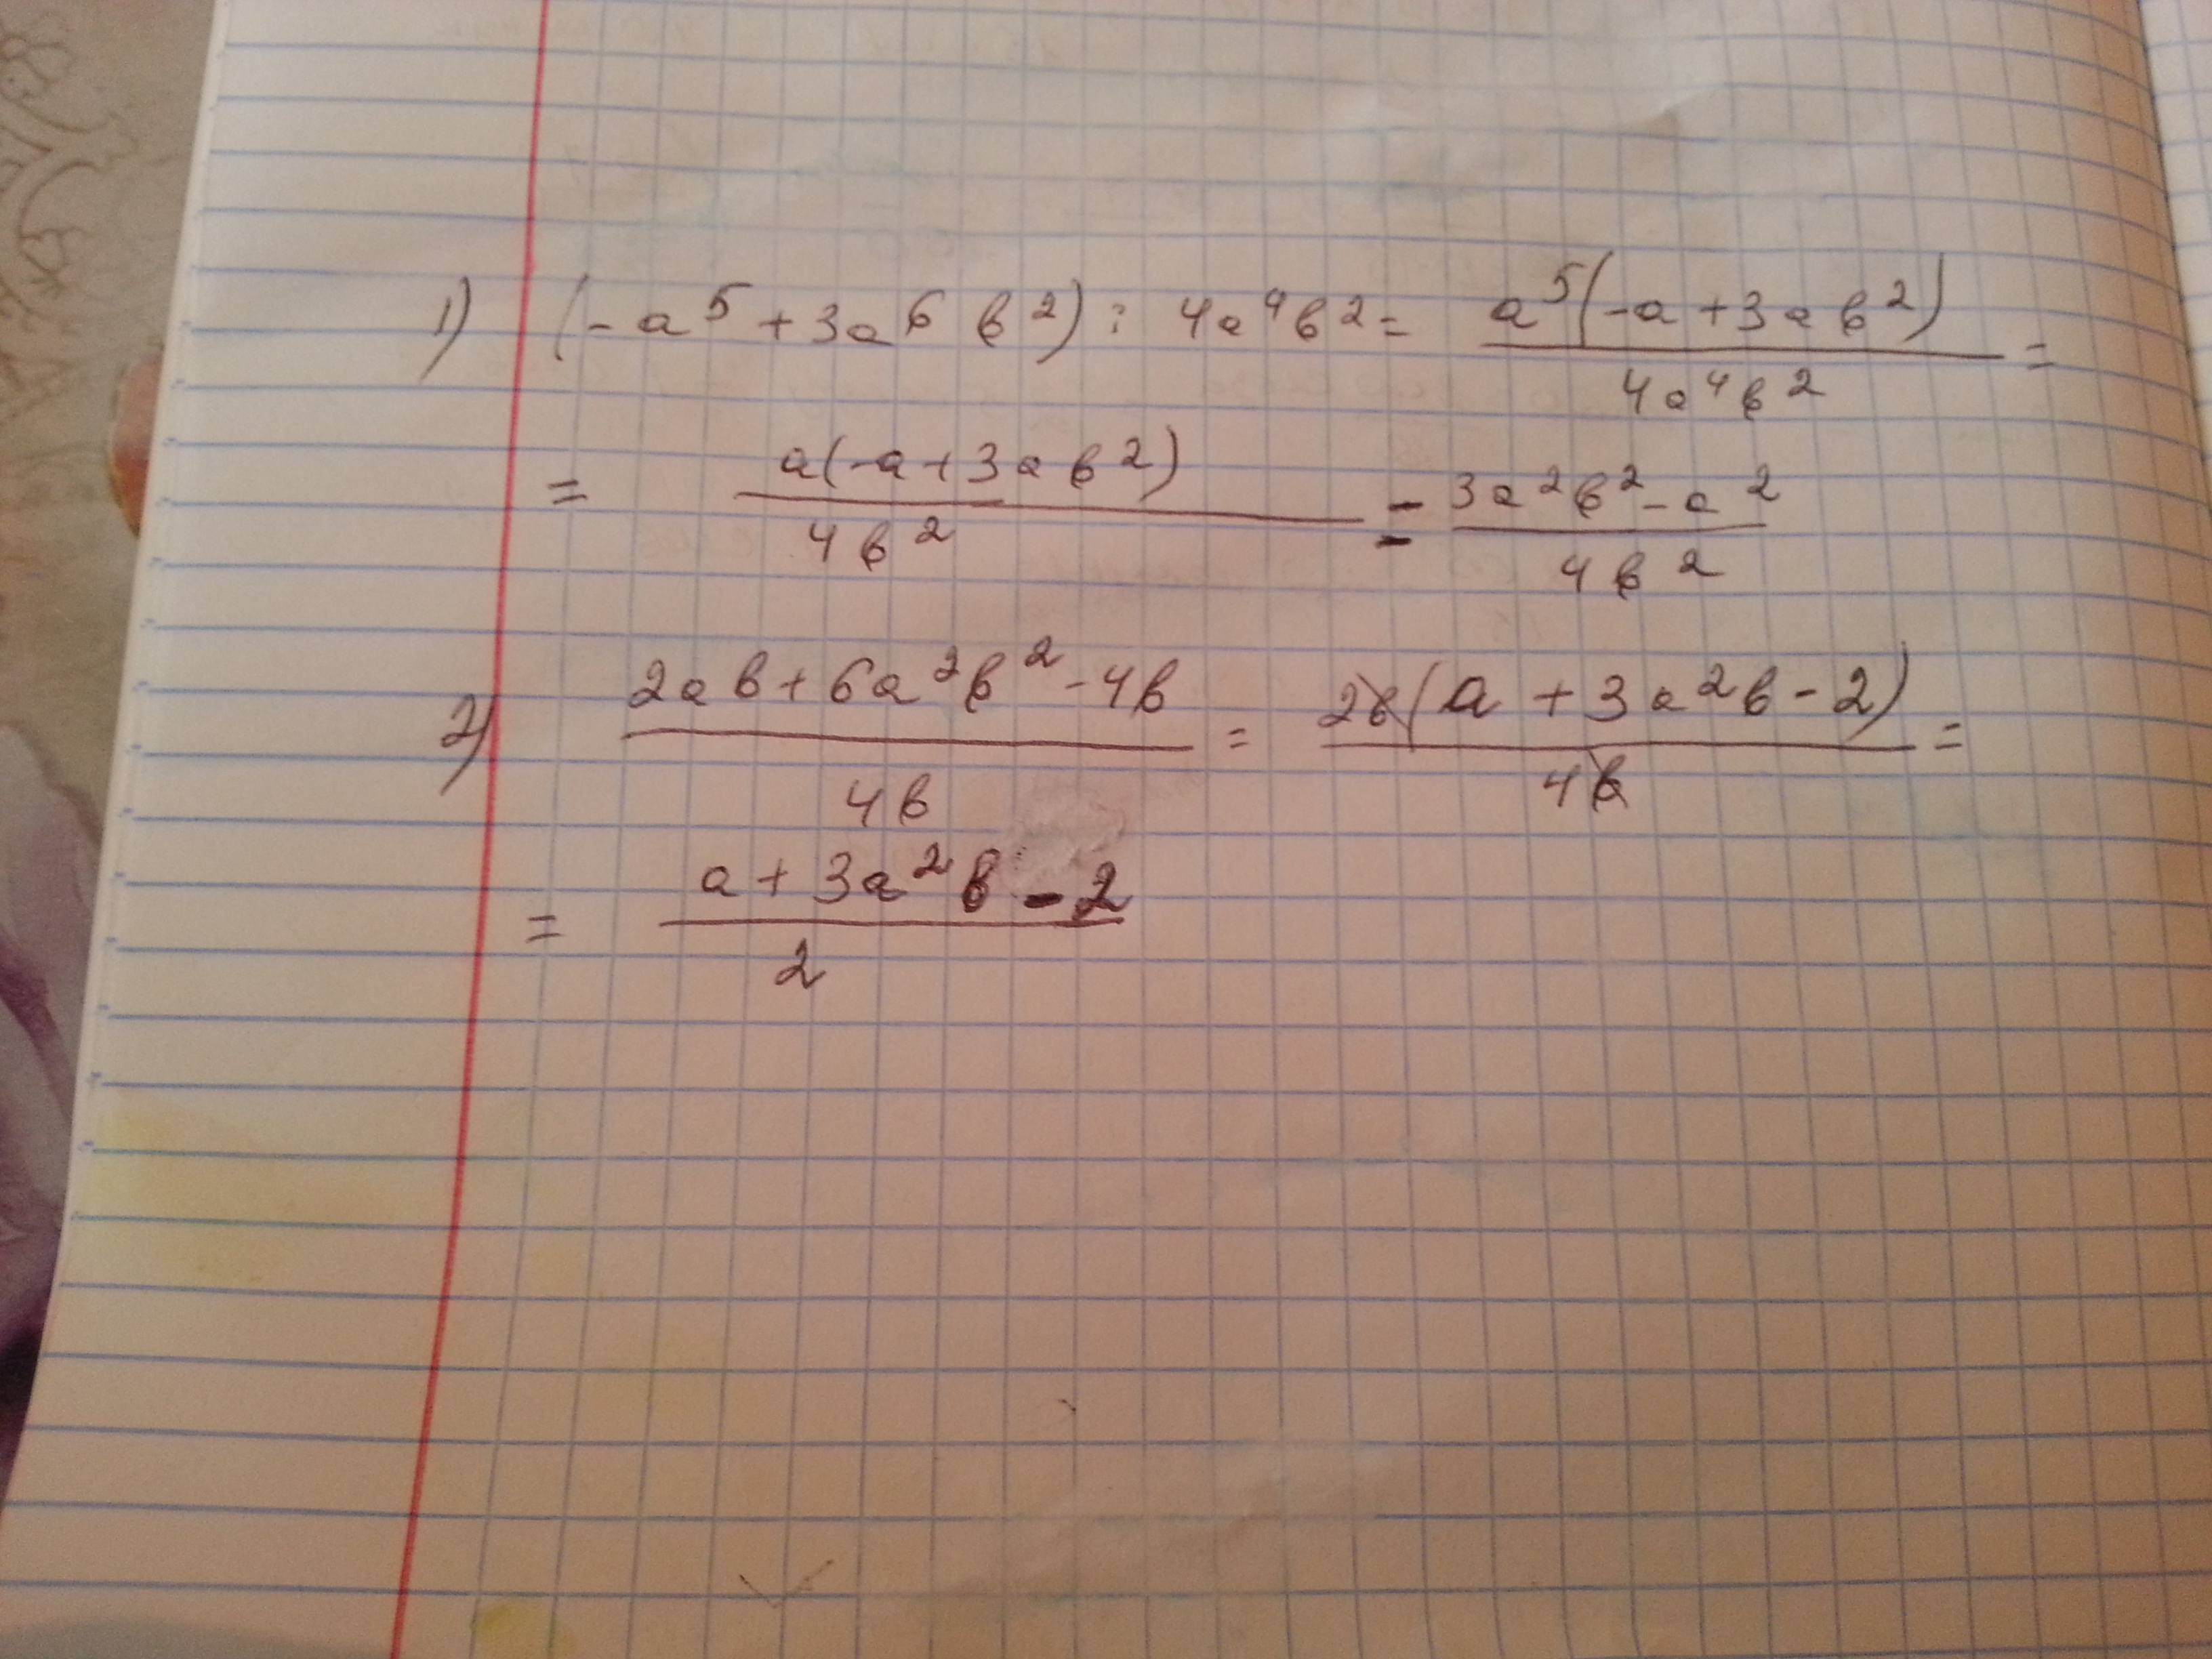 1) (-a⁵ + 3a⁶ b²) : 4a⁴b² = a⁵(-a + 3ab²) / 4a⁴b² =
= a(-a + 3ab²) / 4b² = 3a²b² - a² / 4b²
2) 2ab + 6a²b² - 4b / 4b = 2b(a + 3a²b - 2) / 4b =
= a + 3a²b - 2 / 2